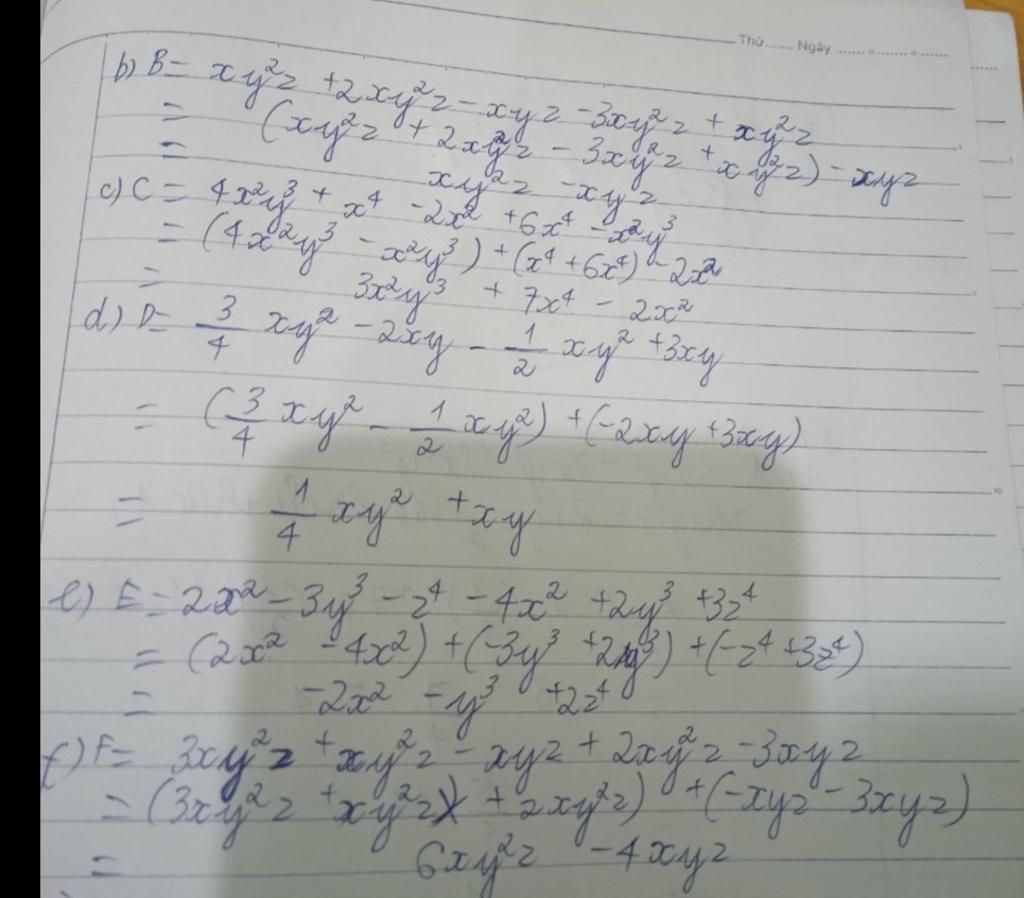 Thứ....... Ngày ...... o ....... o ......
b) B = xy²z + 2xy²z - xyz - 3xy²z + xy²z
= (xy²z + 2xy²z - 3xy²z + xy²z) - xyz
= xy²z - xyz
c) C = 4x²y³ + x⁴ - 2x² + 6x⁴ - x²y³
= (4x²y³ - x²y³) + (x⁴ + 6x⁴) - 2x²
= 3x²y³ + 7x⁴ - 2x²
d) D = 3/4 xy² - 2xy - 1/2 xy² + 3xy
= (3/4 xy² - 1/2 xy²) + (-2xy + 3xy)
= 1/4 xy² + xy
e) E = 2x² - 3y³ - z⁴ - 4x² + 2y³ + 3z⁴
= (2x² - 4x²) + (-3y³ + 2y³) + (-z⁴ + 3z⁴)
= -2x² - y³ + 2z⁴
f) F = 3xy²z + xy²z - xyz + 2xy²z - 3xyz
= (3xy²z + xy²z + 2xy²z) + (-xyz - 3xyz)
= 6xy²z - 4xyz